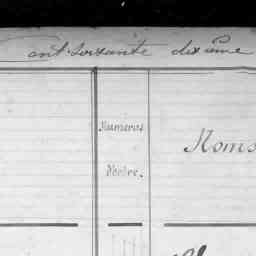 Cent soixante dixième
Numéros
d'ordre.
Noms